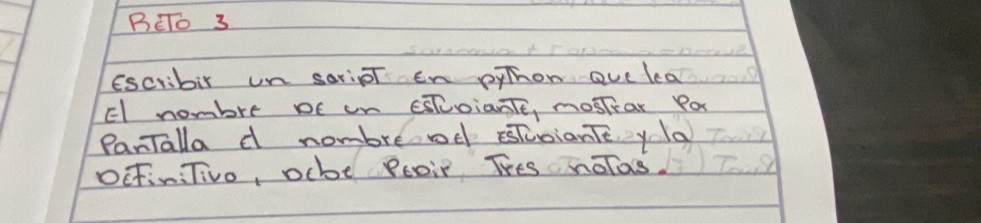 RETO 3
Escribir un script En pyThon que lea
El nombre DE un EsTuDianTE, mosTrar Por
PanTalla el nombre del EsTuDianTE y la
DEfiniTiva, DEbe PEDir Tres noTas.